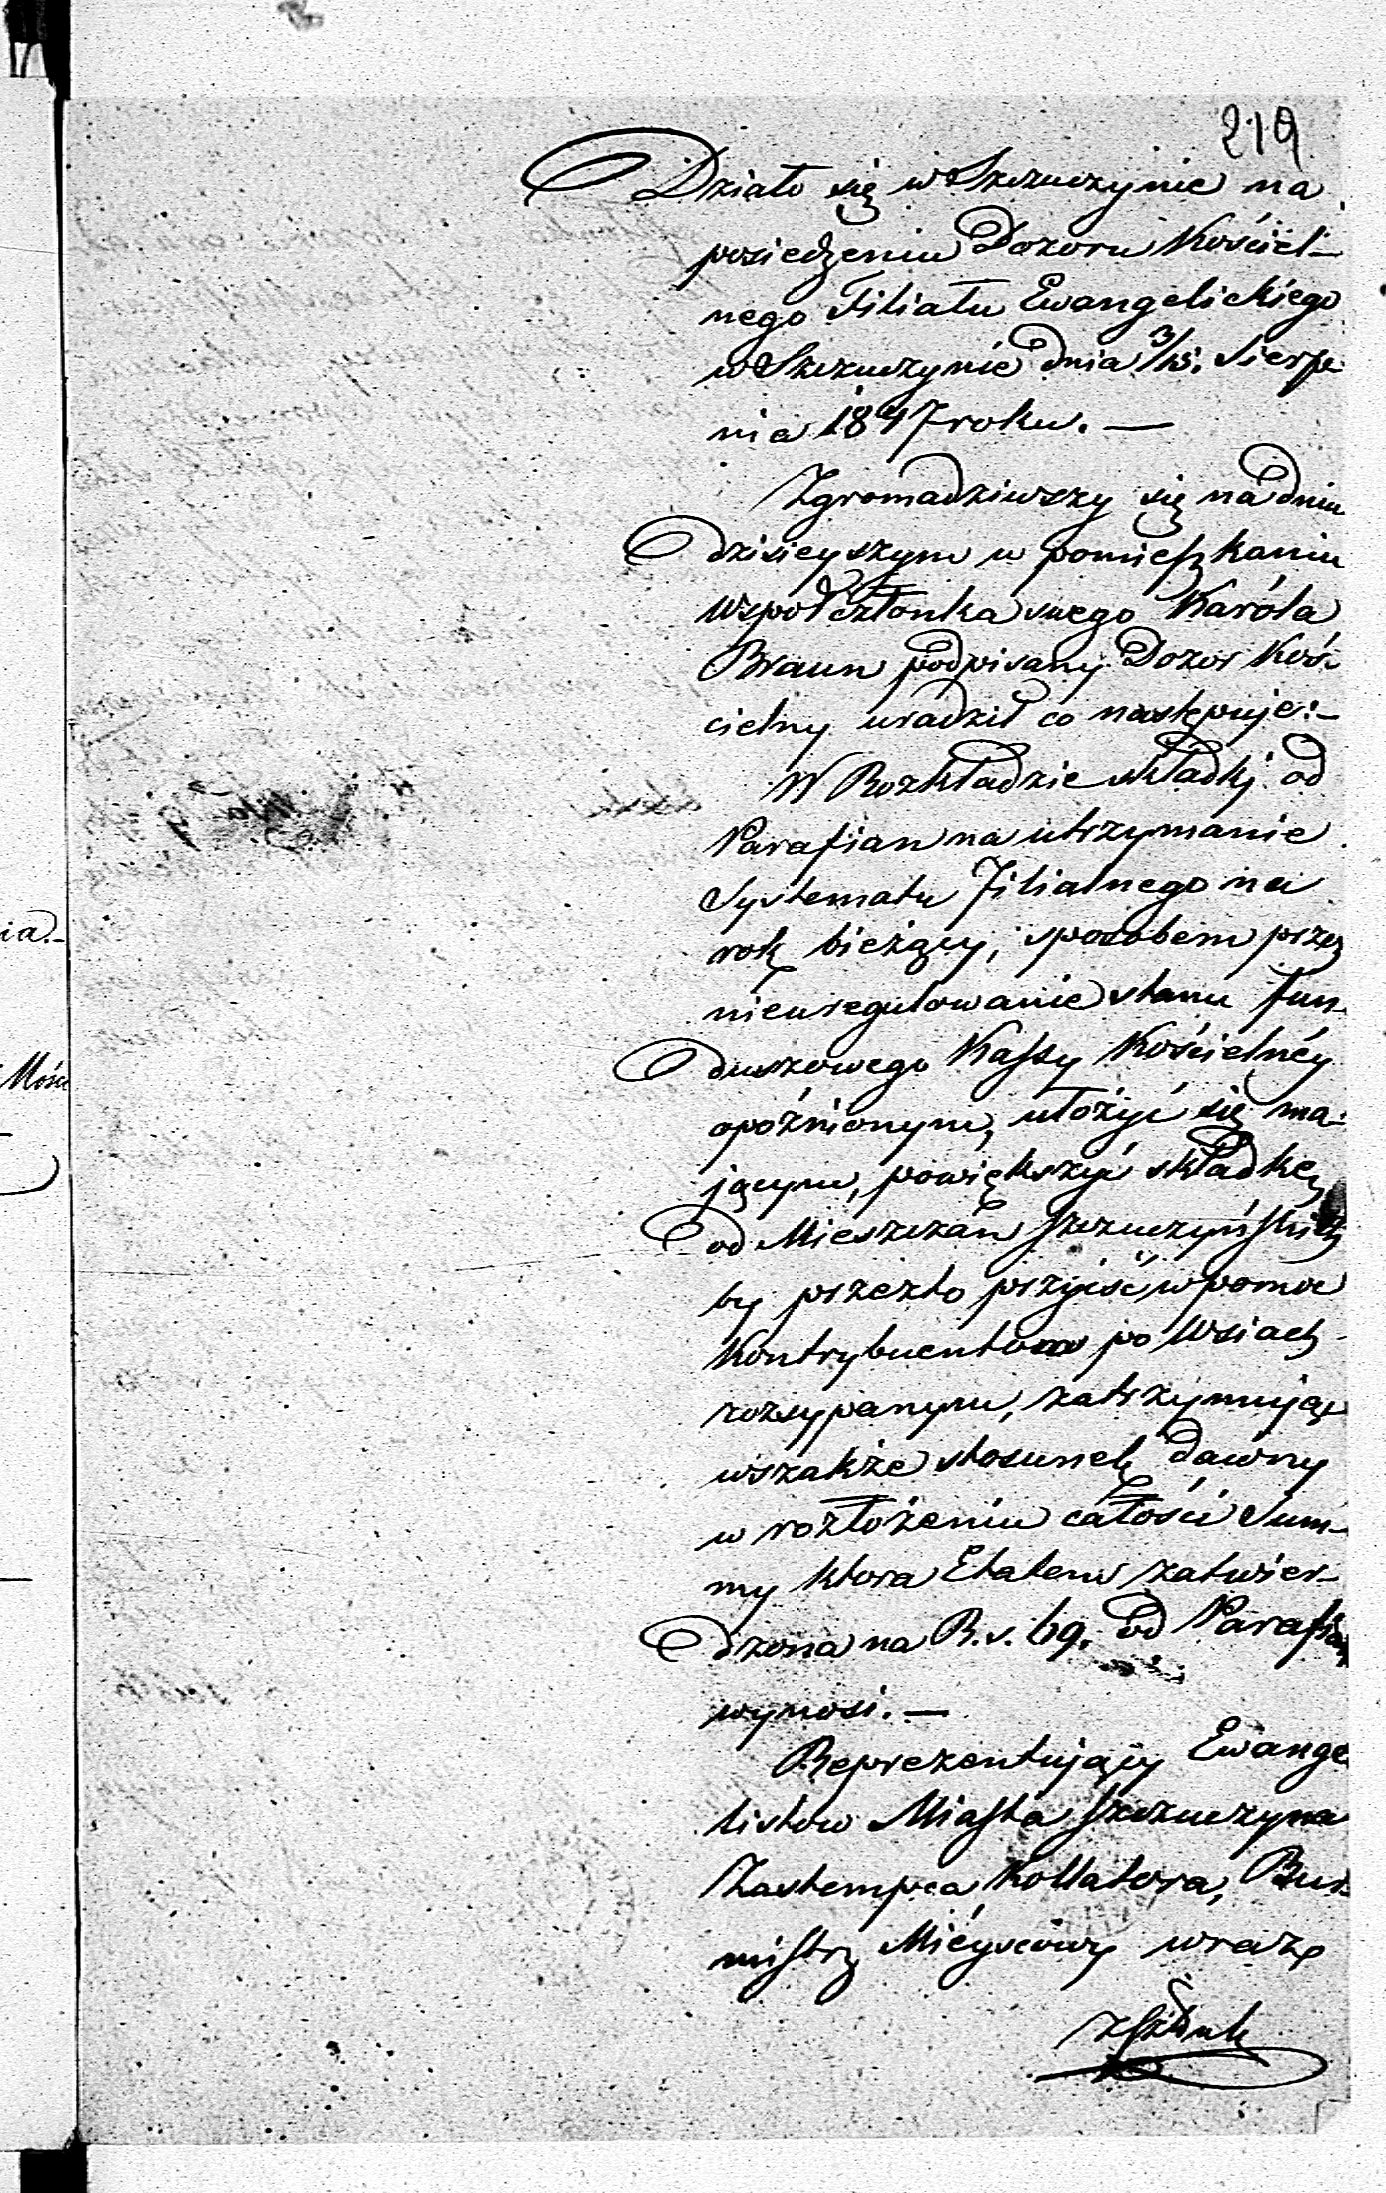 219
Działo się w Szczuczynie na
posiedzeniu Dozoru Kościel-
nego Filiału Ewangelickiego
w Szczuczynie dnia 3/15. Sierp
nia 1847 roku. —
Zgromadziwszy się na dniu
dzisieyszym w pomieszkaniu
współczłonka swego Karóla
Braun podpisany Dozor Koś-
cielny uradził co następuje:—
W Rozkładzie składki od
Parafian na utrzymanie
Systematu Filialnego na
rok bieżący, sposobem przez
nieuregulowanie stanu fun-
duszowego Kassy Kościelnéy
opóźnionym, ułożyć się ma-
jącym, powiększyć składkę
od Mieszczan Szczuczyńskich
by przezto przyiść w pomoc
Kontrybuentom po Wsiach
rozsypanym, zatrzymując
wszakże stosunek dawny
w rozłożeniu całości Sum-
my ktora Etatem zatwier-
dzona na R.s. 69. od Parafian
wynosi. —
Reprezentujący Ewange
listow Miasta Szczuczyna
Zastempca Kollatora, Bur-
mistrz Mieyscowy wraz
ia.-
Mość